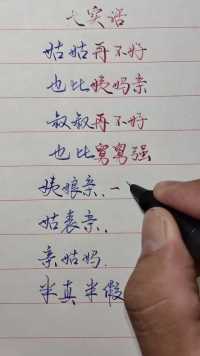 大实话
姑姑再不好
也比姨妈亲
叔叔再不好
也比舅舅强
姨娘亲.一
姑表亲.
亲姑妈.
半真半假